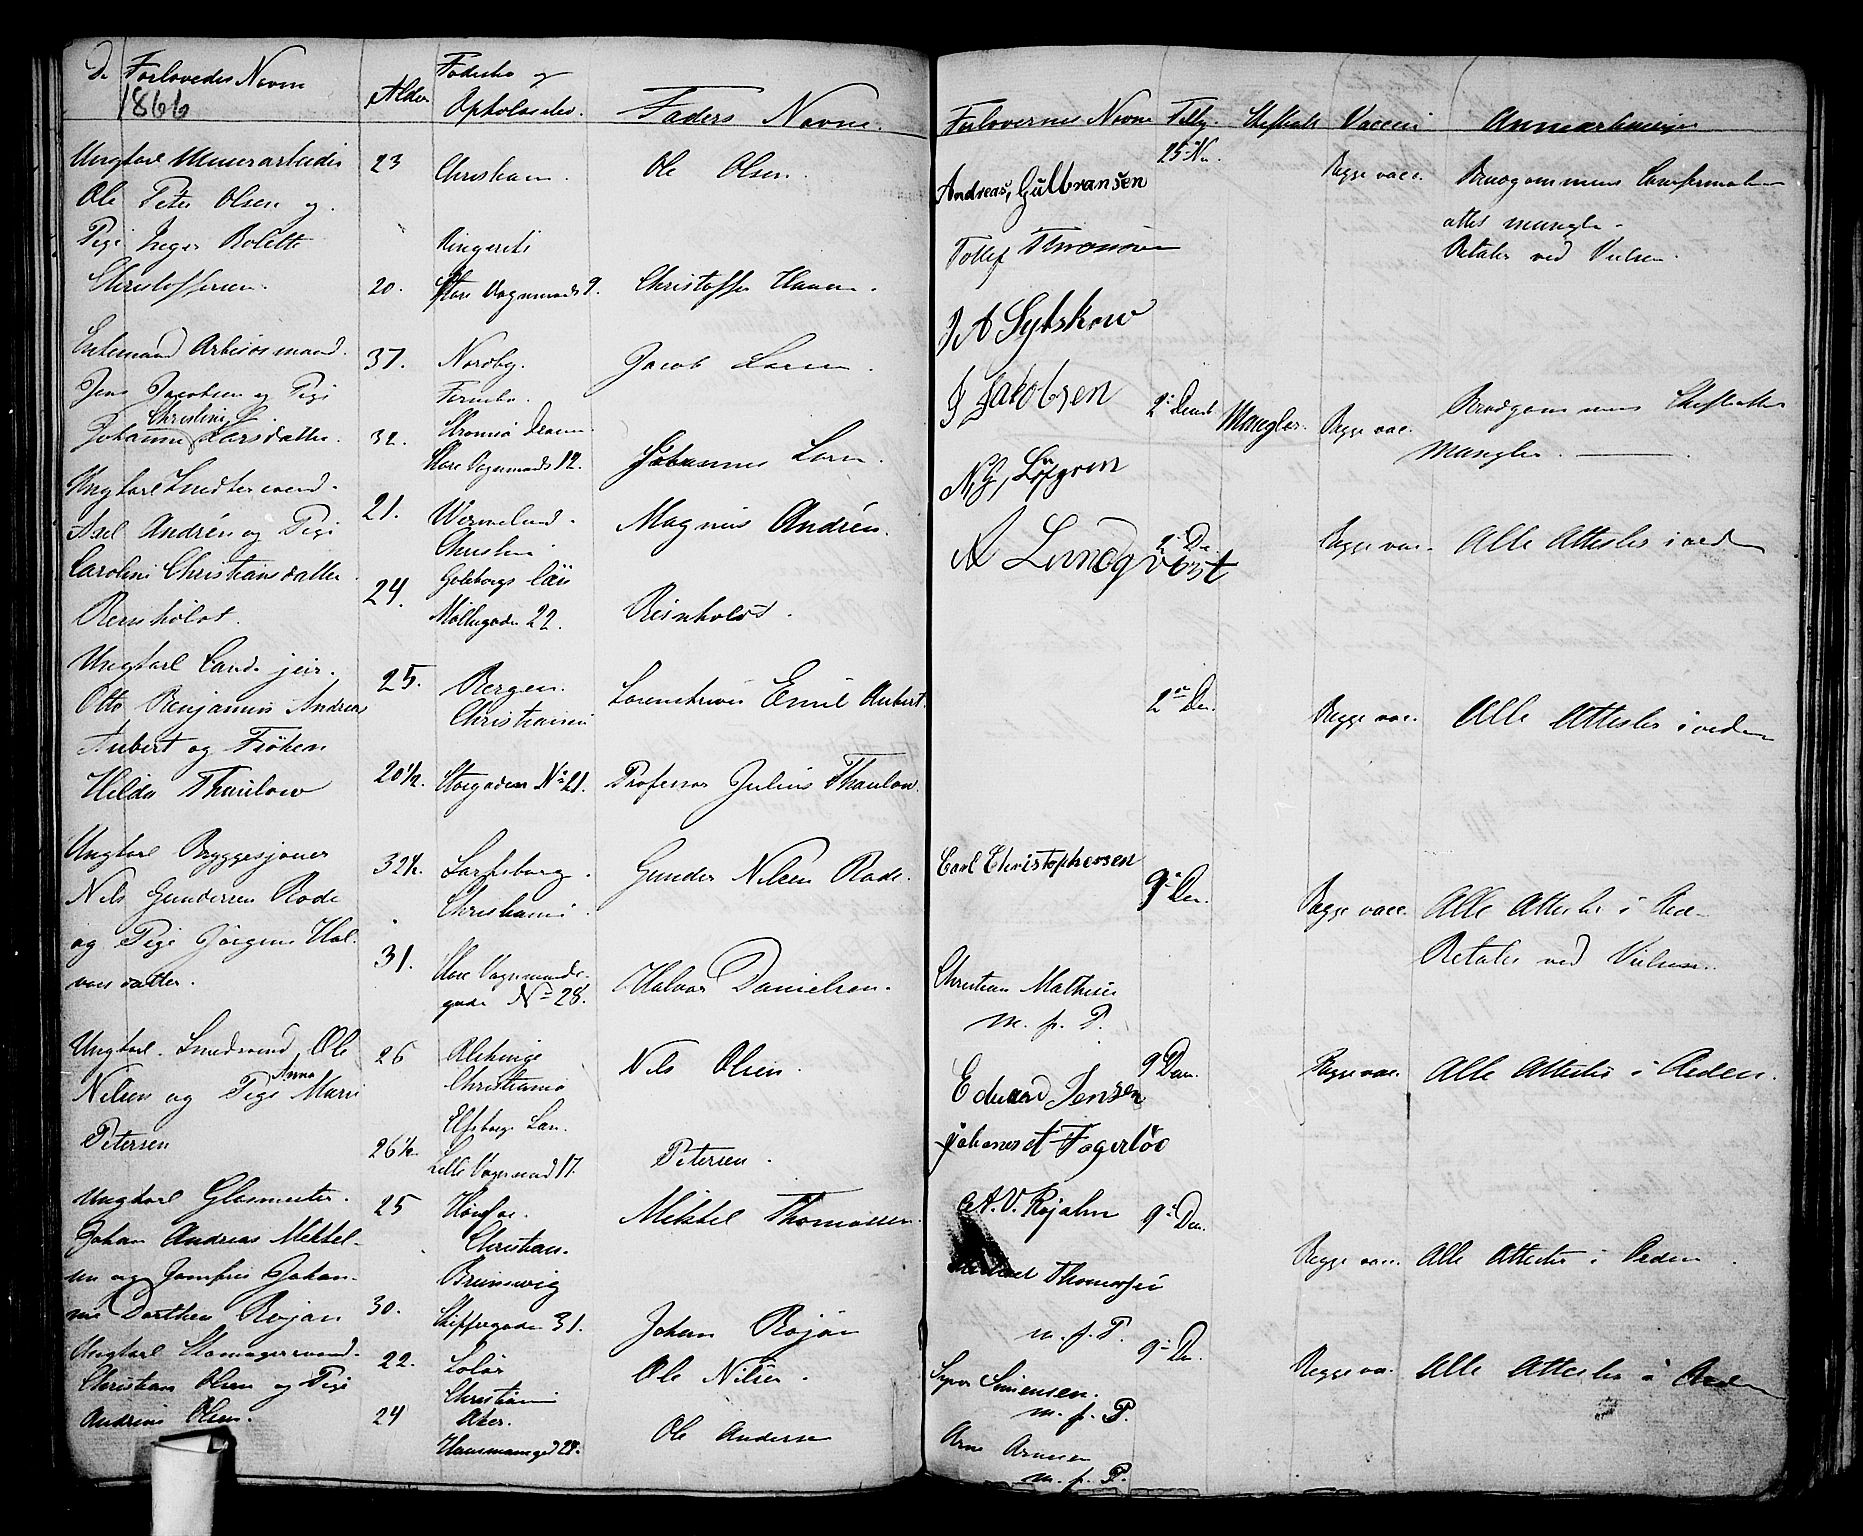 De Forlovedes Navne
1866
Alder
Fødested og
Opholdssted.
Faders Navne.
Forlovernes Navne
Tillys.
Skifteatt
Vaccin
Anmærkninger
Ungkarl Murerarbeider
Ole Peter Olsen og
Pige Inger Bolette
Christoffersen.
23
20.
Christiania.
Ringerike
Store Vognmands 9.
Ole Olsen.
Christoffer Hansen.
Andreas, Gulbransen
Tollef Thronsen
25 Nov.
Begge vacc.
Brudgommens Confirmations
attest mangler.
Betaler ved Vielsen.
Enkemand Arbeidsmand
Jens Jacobsen og Pige
Christine
Johanne Larsdatter.
37.
32.
Nordby.
Strømsø Drammen
Store Vognmands 12.
Jacob Larsen.
Johannes Larsen.
J A Sylskow
J Jakobsen
2 Decemb
Mangler.
Begge vacc.
Brudgommens Skifteattest
Mangler.
Ungkarl Smedsvend
Axel Andrén og Pige
Caroline Christiansdatter
Reinholdt.
21.
24.
Wermeland.
Christiania.
Göteborgs län
Møllergaden 22.
Magnus Andrén.
Reinholdt.
N. J, Löfgren
A Lundqvist
2 De
Begge vacc.
Alle Attester i orden
Ungkarl Cand. jur.
Otto Benjamin Andreas
Aubert og Frøken
Hilda Thaulow
25.
20 1/2.
Bergen.
Christiania
Storgaden No 21.
Sorenskriver Emil Aubert.
Professor Julius Thaulow.
2 Dec.
Begge vacc.
Alle Attester i orden
Ungkarl Bryggesjouer
Nils Gundersen Rode
og Pige Jørgine Hal-
vorsdatter.
32 1/2.
31.
Sarpsborg.
Christiania.
Store Vognmands-
gade No 28.
Gunder Nilsen Rode.
Halvor Danielsen.
Carl Christophersen
Christian Mathisen
m. p. P.
9 Dec.
Begge vacc.
Alle Attester i Orden
Betaler ved Vielsen.
Ungkarl Smedsvend Ole
Anna
Nilsen og Pige Marie
Petersen
26
26 1/2
Christiania
Elfsborgs Län.
Lille Vognmand 17.
Nils Olsen.
Petersen.
Eduard Jensen
Johannes A Fagerlöv
9 Dec.
Begge vacc.
Alle Attester i Orden.
Ungkarl Glasmester
Johan Andreas Mikkel-
sen og Jomfru Johan-
ne Dorthea Rojan
25
30.
Christiania.
Brunswig
Skippergaden 31.
Mikkel Thomassen.
Johan Rojan
A. V. Rojahn
Thomassen
m. p. P.
9 Dec.
Begge vacc.
Alle Attester i Orden.
Ungkarl Skomagersvend
Christian Olsen og Pige
Andrine Olsen.
22.
24
Solør
Christiania
Aker.
Hausmannsgd 28.
Ole Nilsen.
Ole Andersen
Simensen.
m. p. P.
Arne Arnesen
m. p. P.
9 De
Begge vac.
Alle Attester i Orden